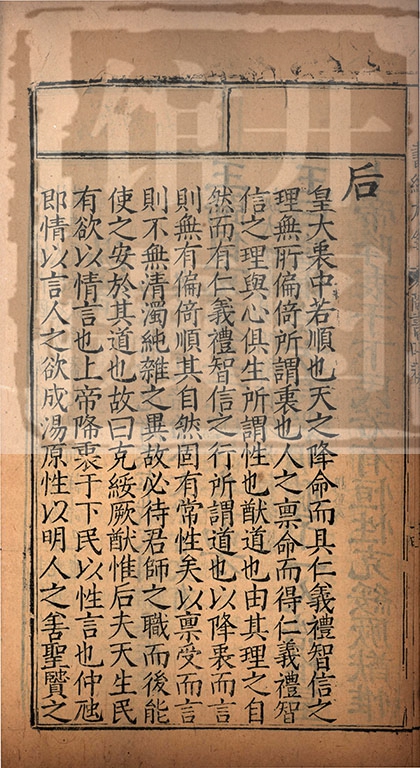 后
皇大衷中若順也天之降命而具仁義禮智信之
理無所偏倚所謂衷也人之禀命而得仁義禮智
信之理與心俱生所謂性也猷道也由其理之自
然而有仁義禮智信之行所謂道也以降衷而言
則無有偏倚順其自然固有常性矣以禀受而言
則不無清濁純雜之異故必待君師之職而後能
使之安於其道也故曰克綏厥猷惟后夫天生民
有欲以情言也上帝降衷于下民以性言也仲虺
即情以言人之欲成湯原性以明人之善聖賢之